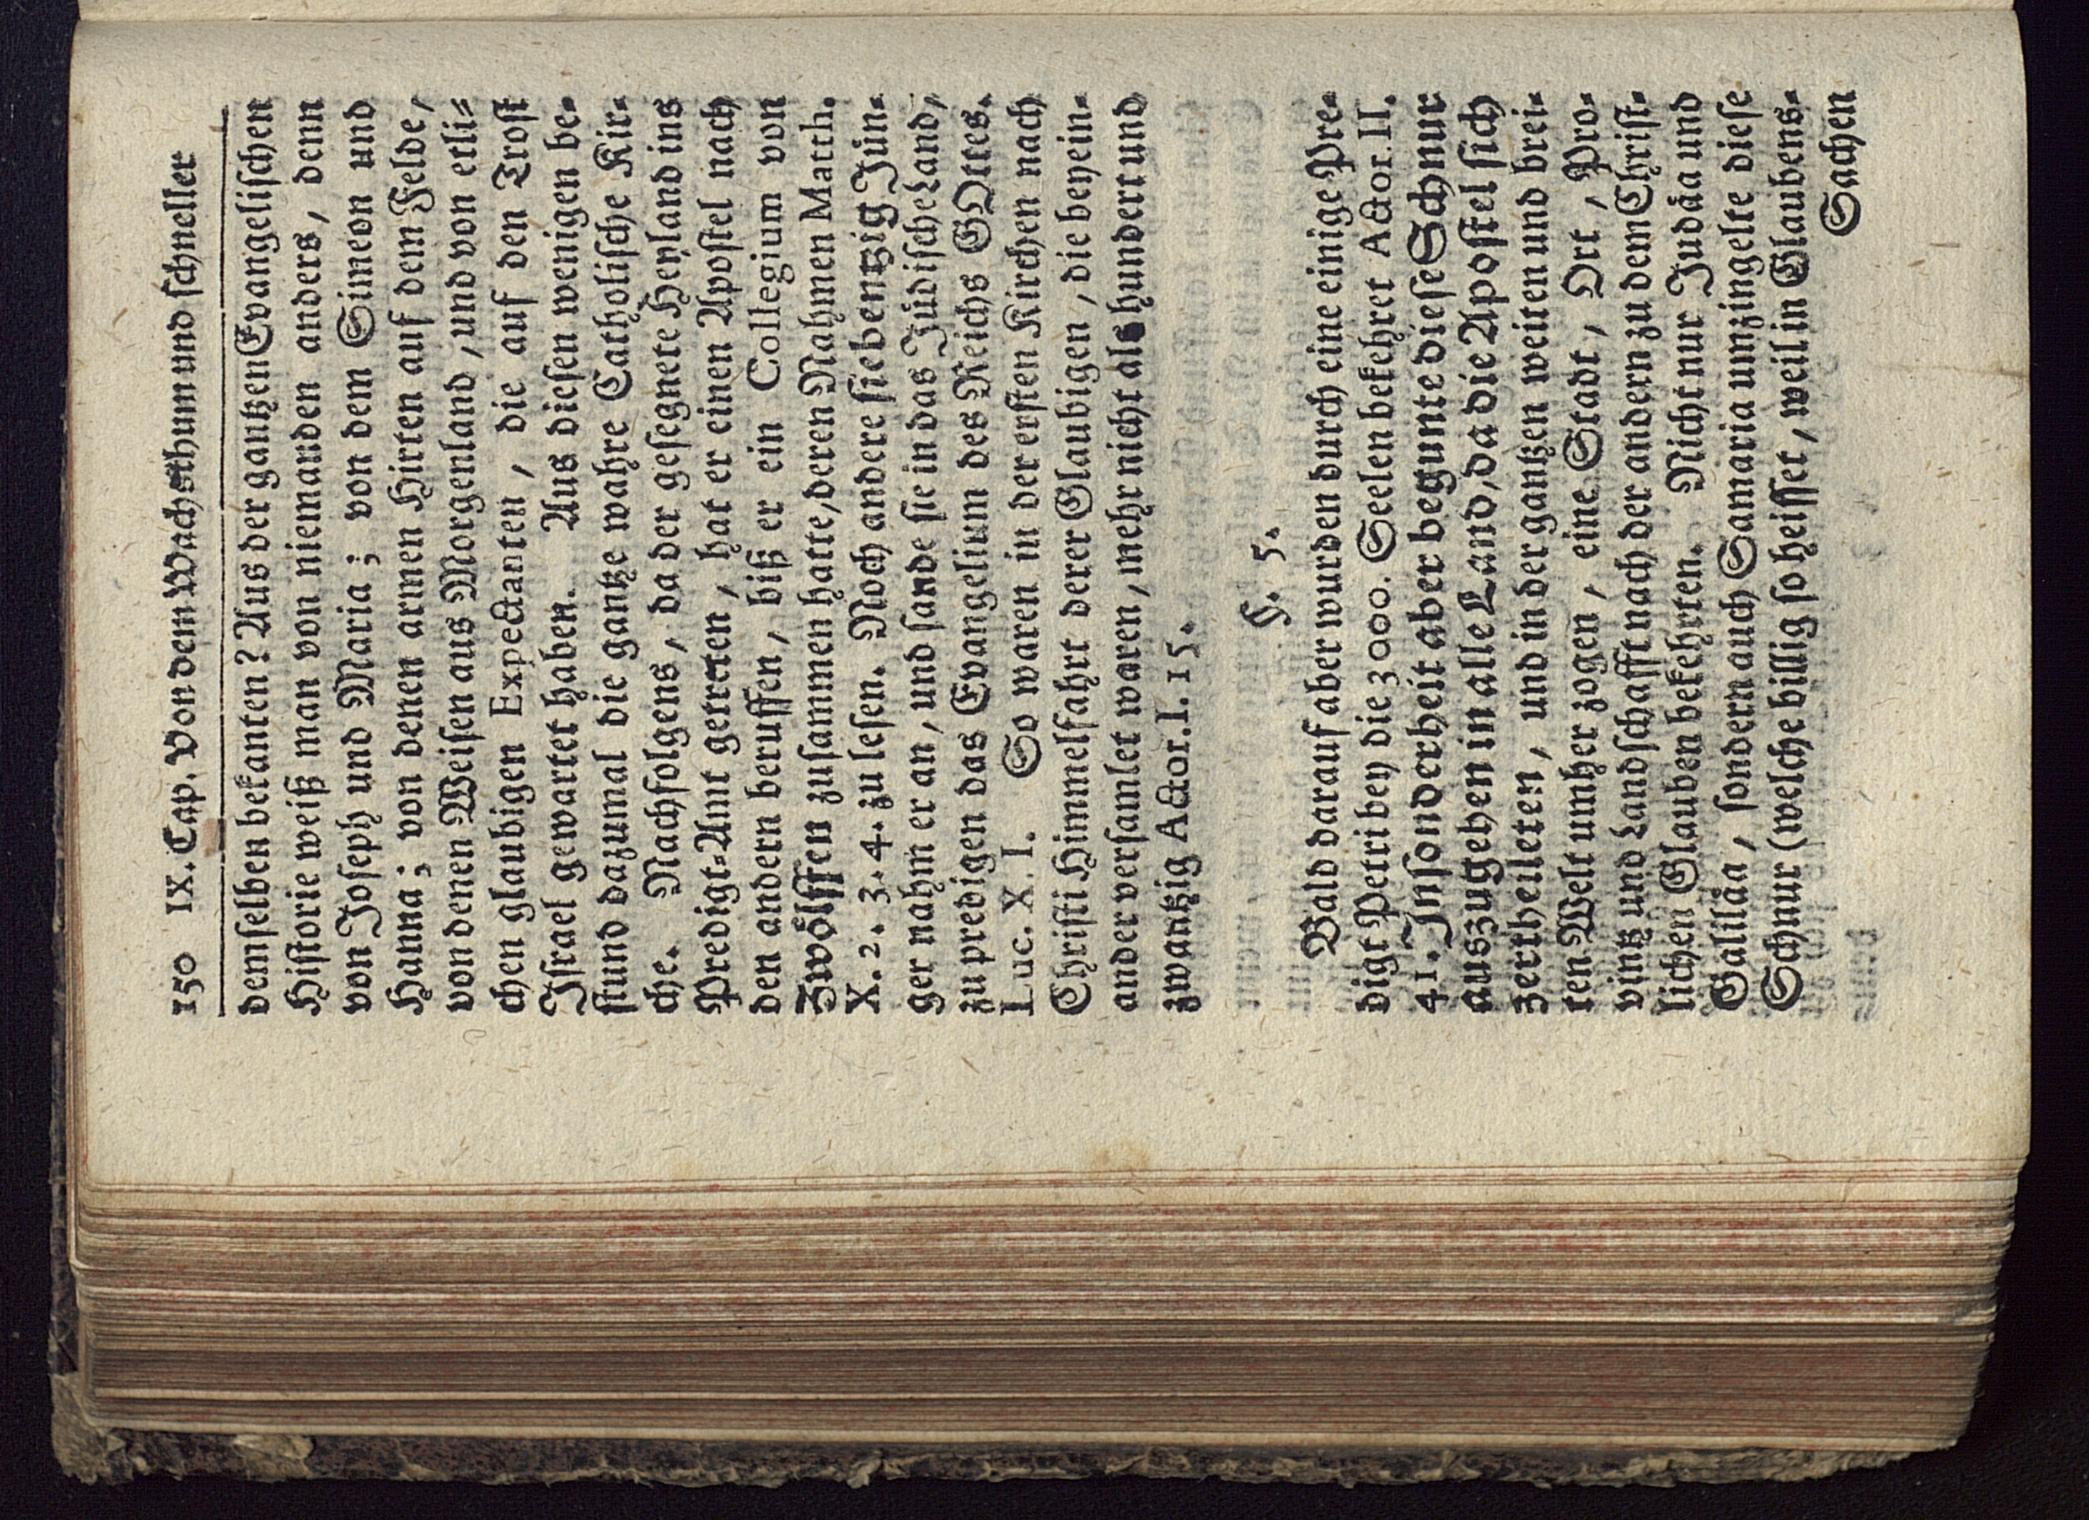 150 IX. Cap. Von dem Wachsthum und schneller
demselben bekanten? Aus der gantzen Evangelischen
Historie weiß man von niemanden anders, denn
von Joseph und Maria; von dem Simeon und
Hanna; von denen armen Hirten auf dem Felde,
von denen Weisen aus Morgenland, und von etli-
chen glaubigen Expectanten, die auf den Trost
Israel gewartet haben. Aus diesen wenigen be-
stund dazumal die gantze wahre Catholische Kir-
che. Nachfolgens, da der gesegnete Heyland ins
Predigt-Amt getreten, hat er einen Apostel nach
den andern beruffen, biß er ein Collegium von
Zwölfften zusammen hatte, deren Nahmen Matth.
X. 2. 3. 4. zu lesen. Noch andere siebentzig Jün-
ger nahm er an, und sande sie in das Jüdische Land,
zu predigen das Evangelium des Reichs GOttes.
Luc. X. I. So waren in der ersten Kirchen nach
Christi Himmelfahrt derer Glaubigen, die beyein-
ander versamlet waren, mehr nicht als hundert und
zwantzig Actor. I. 15.
§. 5.
Bald darauf aber wurden durch eine einige Pre-
digt Petri bey die 3000. Seelen bekehret Actor. II.
41. Insonderheit aber begunte diese Schnur
auszugehen in alle Land, da die Apostel sich
zertheileten, und in der gantzen weiten und brei-
ten Welt umher zogen, eine Stadt, Ort, Pro-
vintz und Landschafft nach der andern zu dem Christ-
lichen Glauben bekehrten. Nicht nur Judäa und
Galiläa, sondern auch Samaria umzingelte diese
Schnur (welche billig so heisset, weil in Glaubens-
Sachen